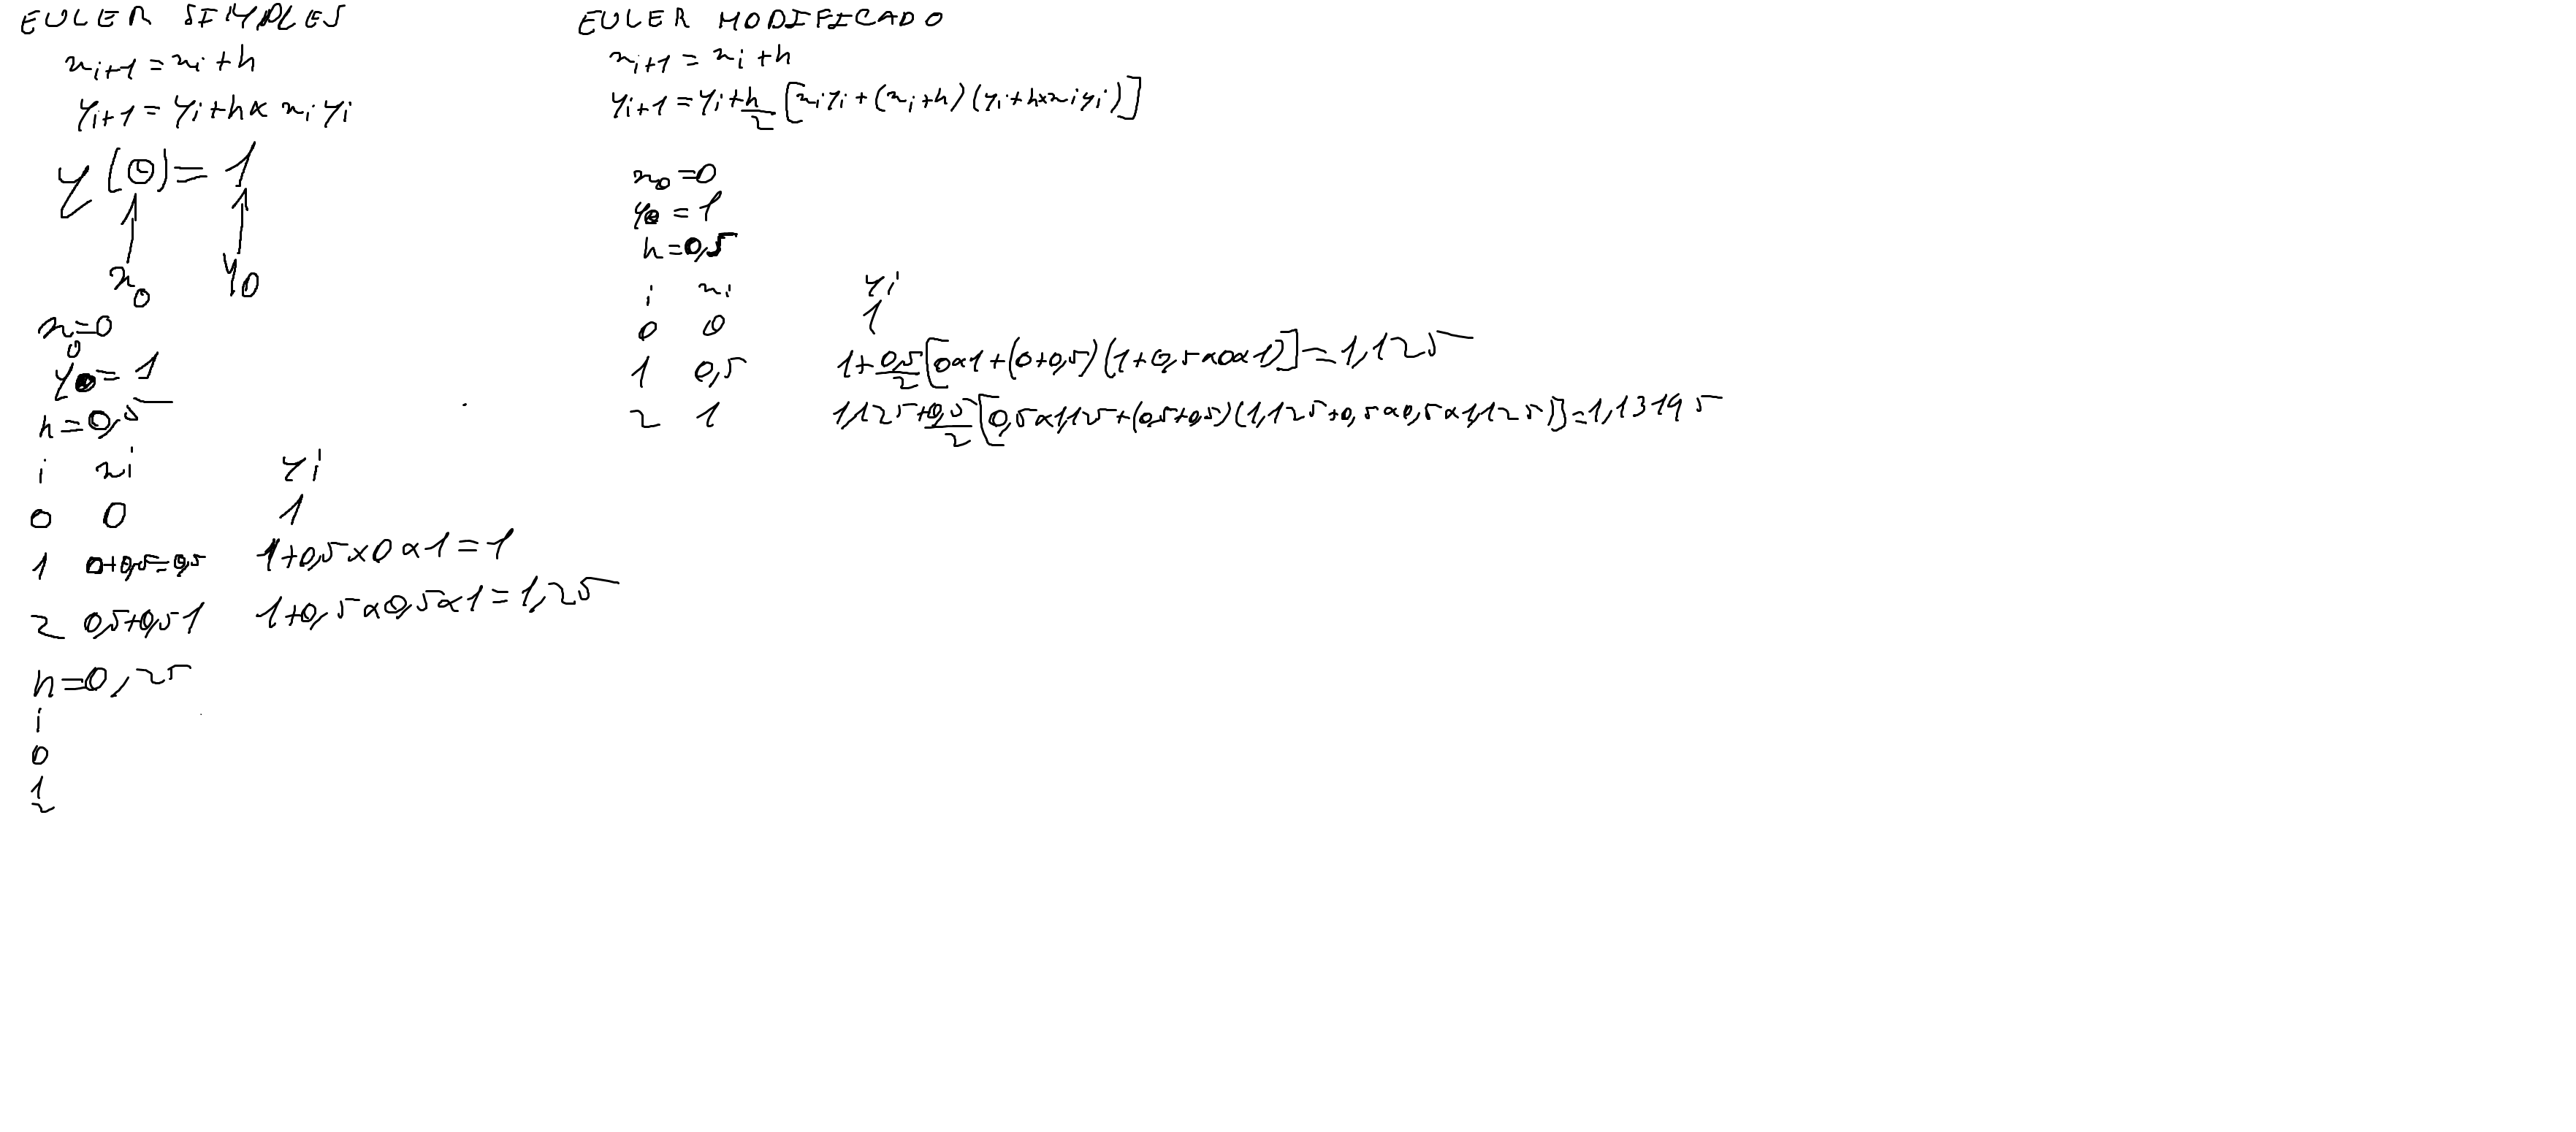 EULER SIMPLES
xi+1 = xi + h
yi+1 = yi + h × xi yi
y(0) = 1
x0 y0
x0 = 0
y0 = 1
h = 0,5
i xi yi
0 0 1
1 0+0,5=0,5 1+0,5×0×1=1
2 0,5+0,5 1 1+0,5×0,5×1=1,25
h=0,25
i
0
1
2
EULER MODIFICADO
xi+1 = xi + h
yi+1 = yi + h/2 [xi yi + (xi + h) (yi + h × xi yi)]
x0 = 0
y0 = 1
h = 0,5
i xi yi
0 0 1
1 0,5 1+0,5/2[0×1+(0+0,5)(1+0,5×0×1)]=1,125
2 1 1,125+0,5/2[0,5×1,125+(0,5+0,5)(1,125+0,5×0,5×1,125)]=1,13195